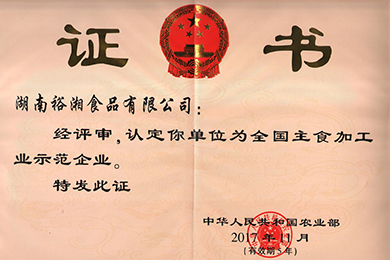 证书
湖南裕湘食品有限公司：
经评审，认定你单位为全国主食加工
业示范企业。
特发此证
中华人民共和国农业部
2017年11月
(有效期5年)